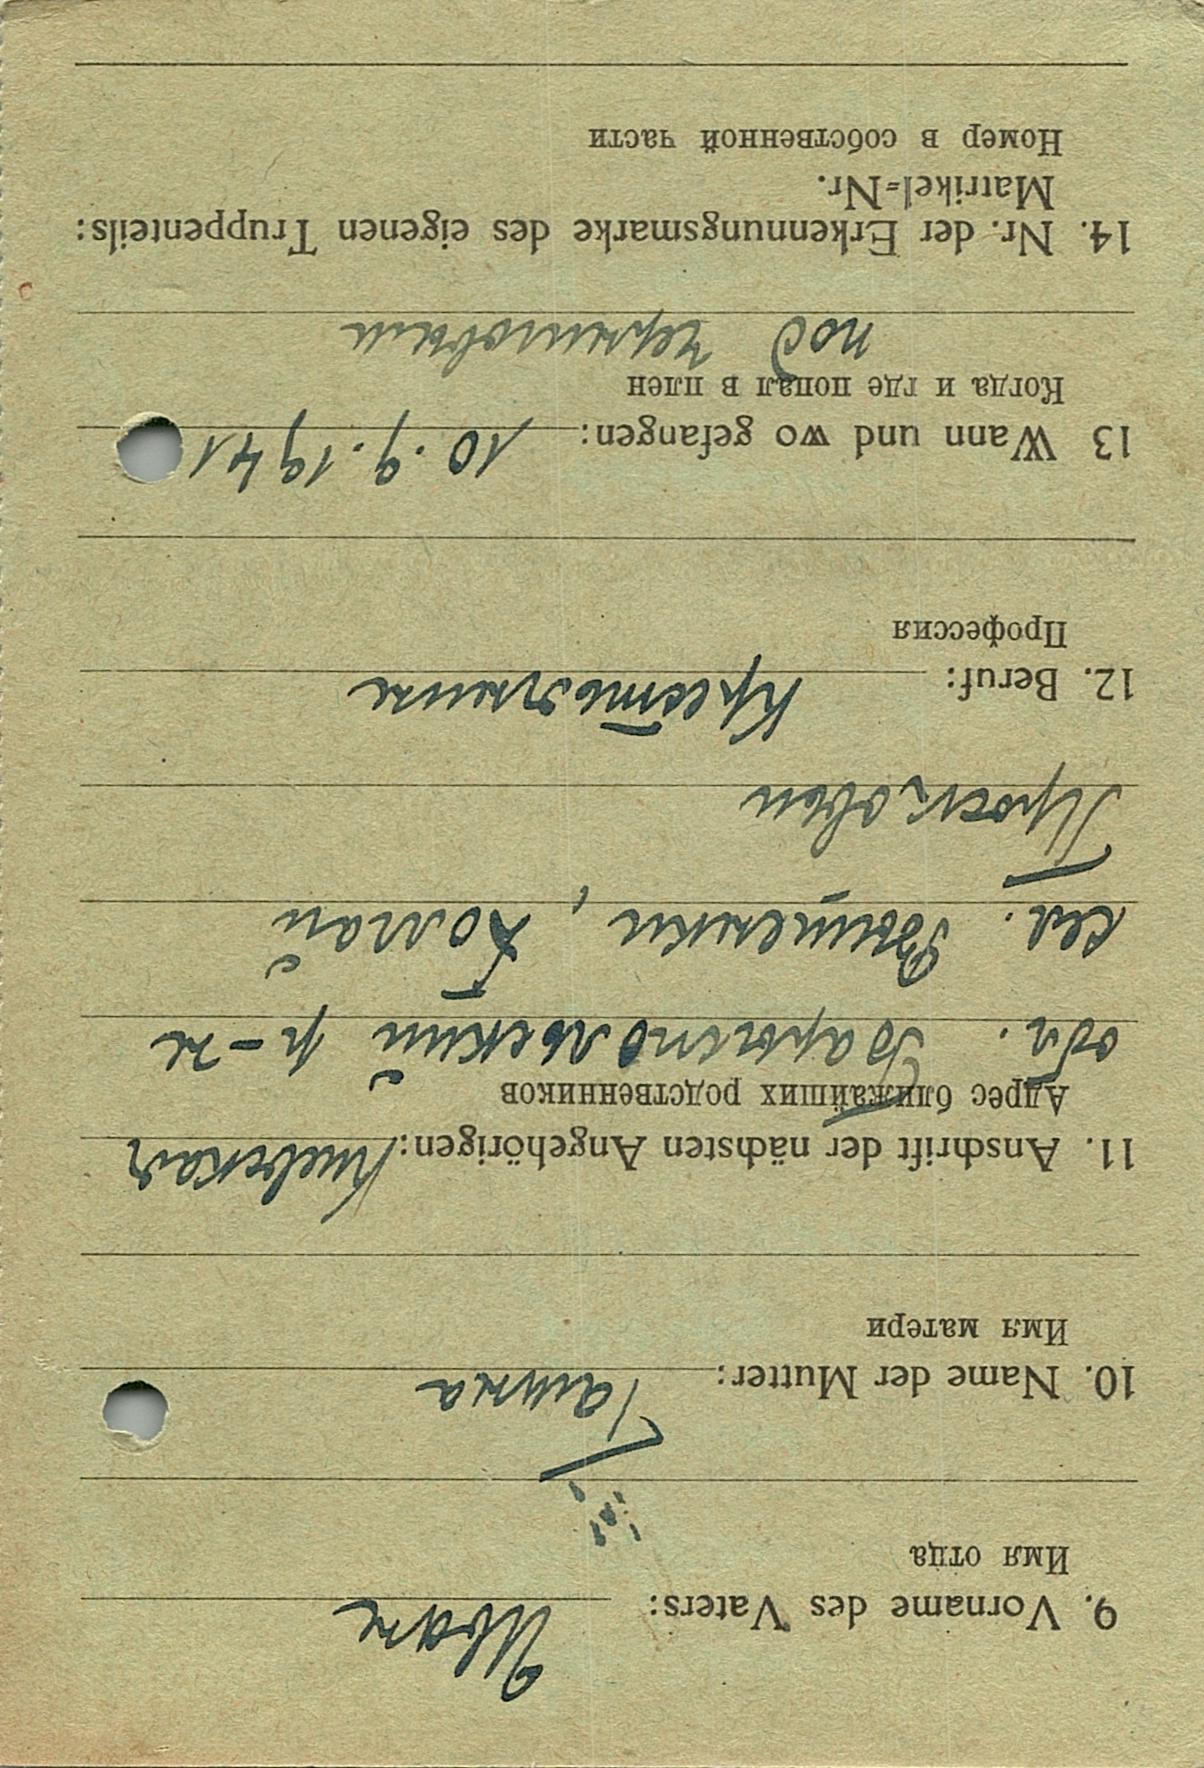 9. Vorname des Vaters: Иван
Имя отца
10. Name der Mutter: Ганна
Имя матери
11. Anschrift der nächsten Angehörigen: Киевская
Адрес ближайших родственников
обл. Барышпольский р-н
сел.
12. Beruf: Крестьянин
Профессия
13 Wann und wo gefangen: 10.9.1941
Когда и где попал в плен
под Черниговым
14. Nr. der Erkennungsmarke des eigenen Truppenteils:
Matrikel=Nr.
Номер в собственной части